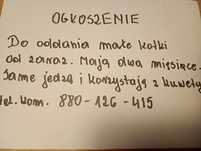 OGŁOSZENIE
Do oddania małe kotki
od zaraz. Mają dwa miesiące.
Same jedzą i korzystają z kuwety
tel. kom. 880-126-415